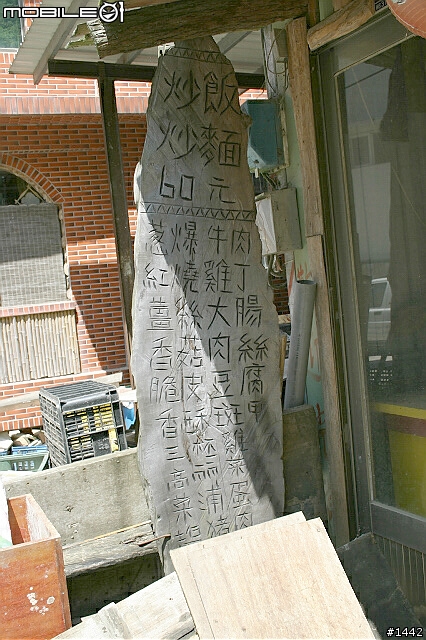 MOBILE01
炒飯
炒麵
60元
蔥爆牛肉
紅燒雞丁
薑絲大腸
香菇肉絲
脆皮豆腐
香酥斑甲
三雞
高菜
菜浦蛋
豬肉
#1442